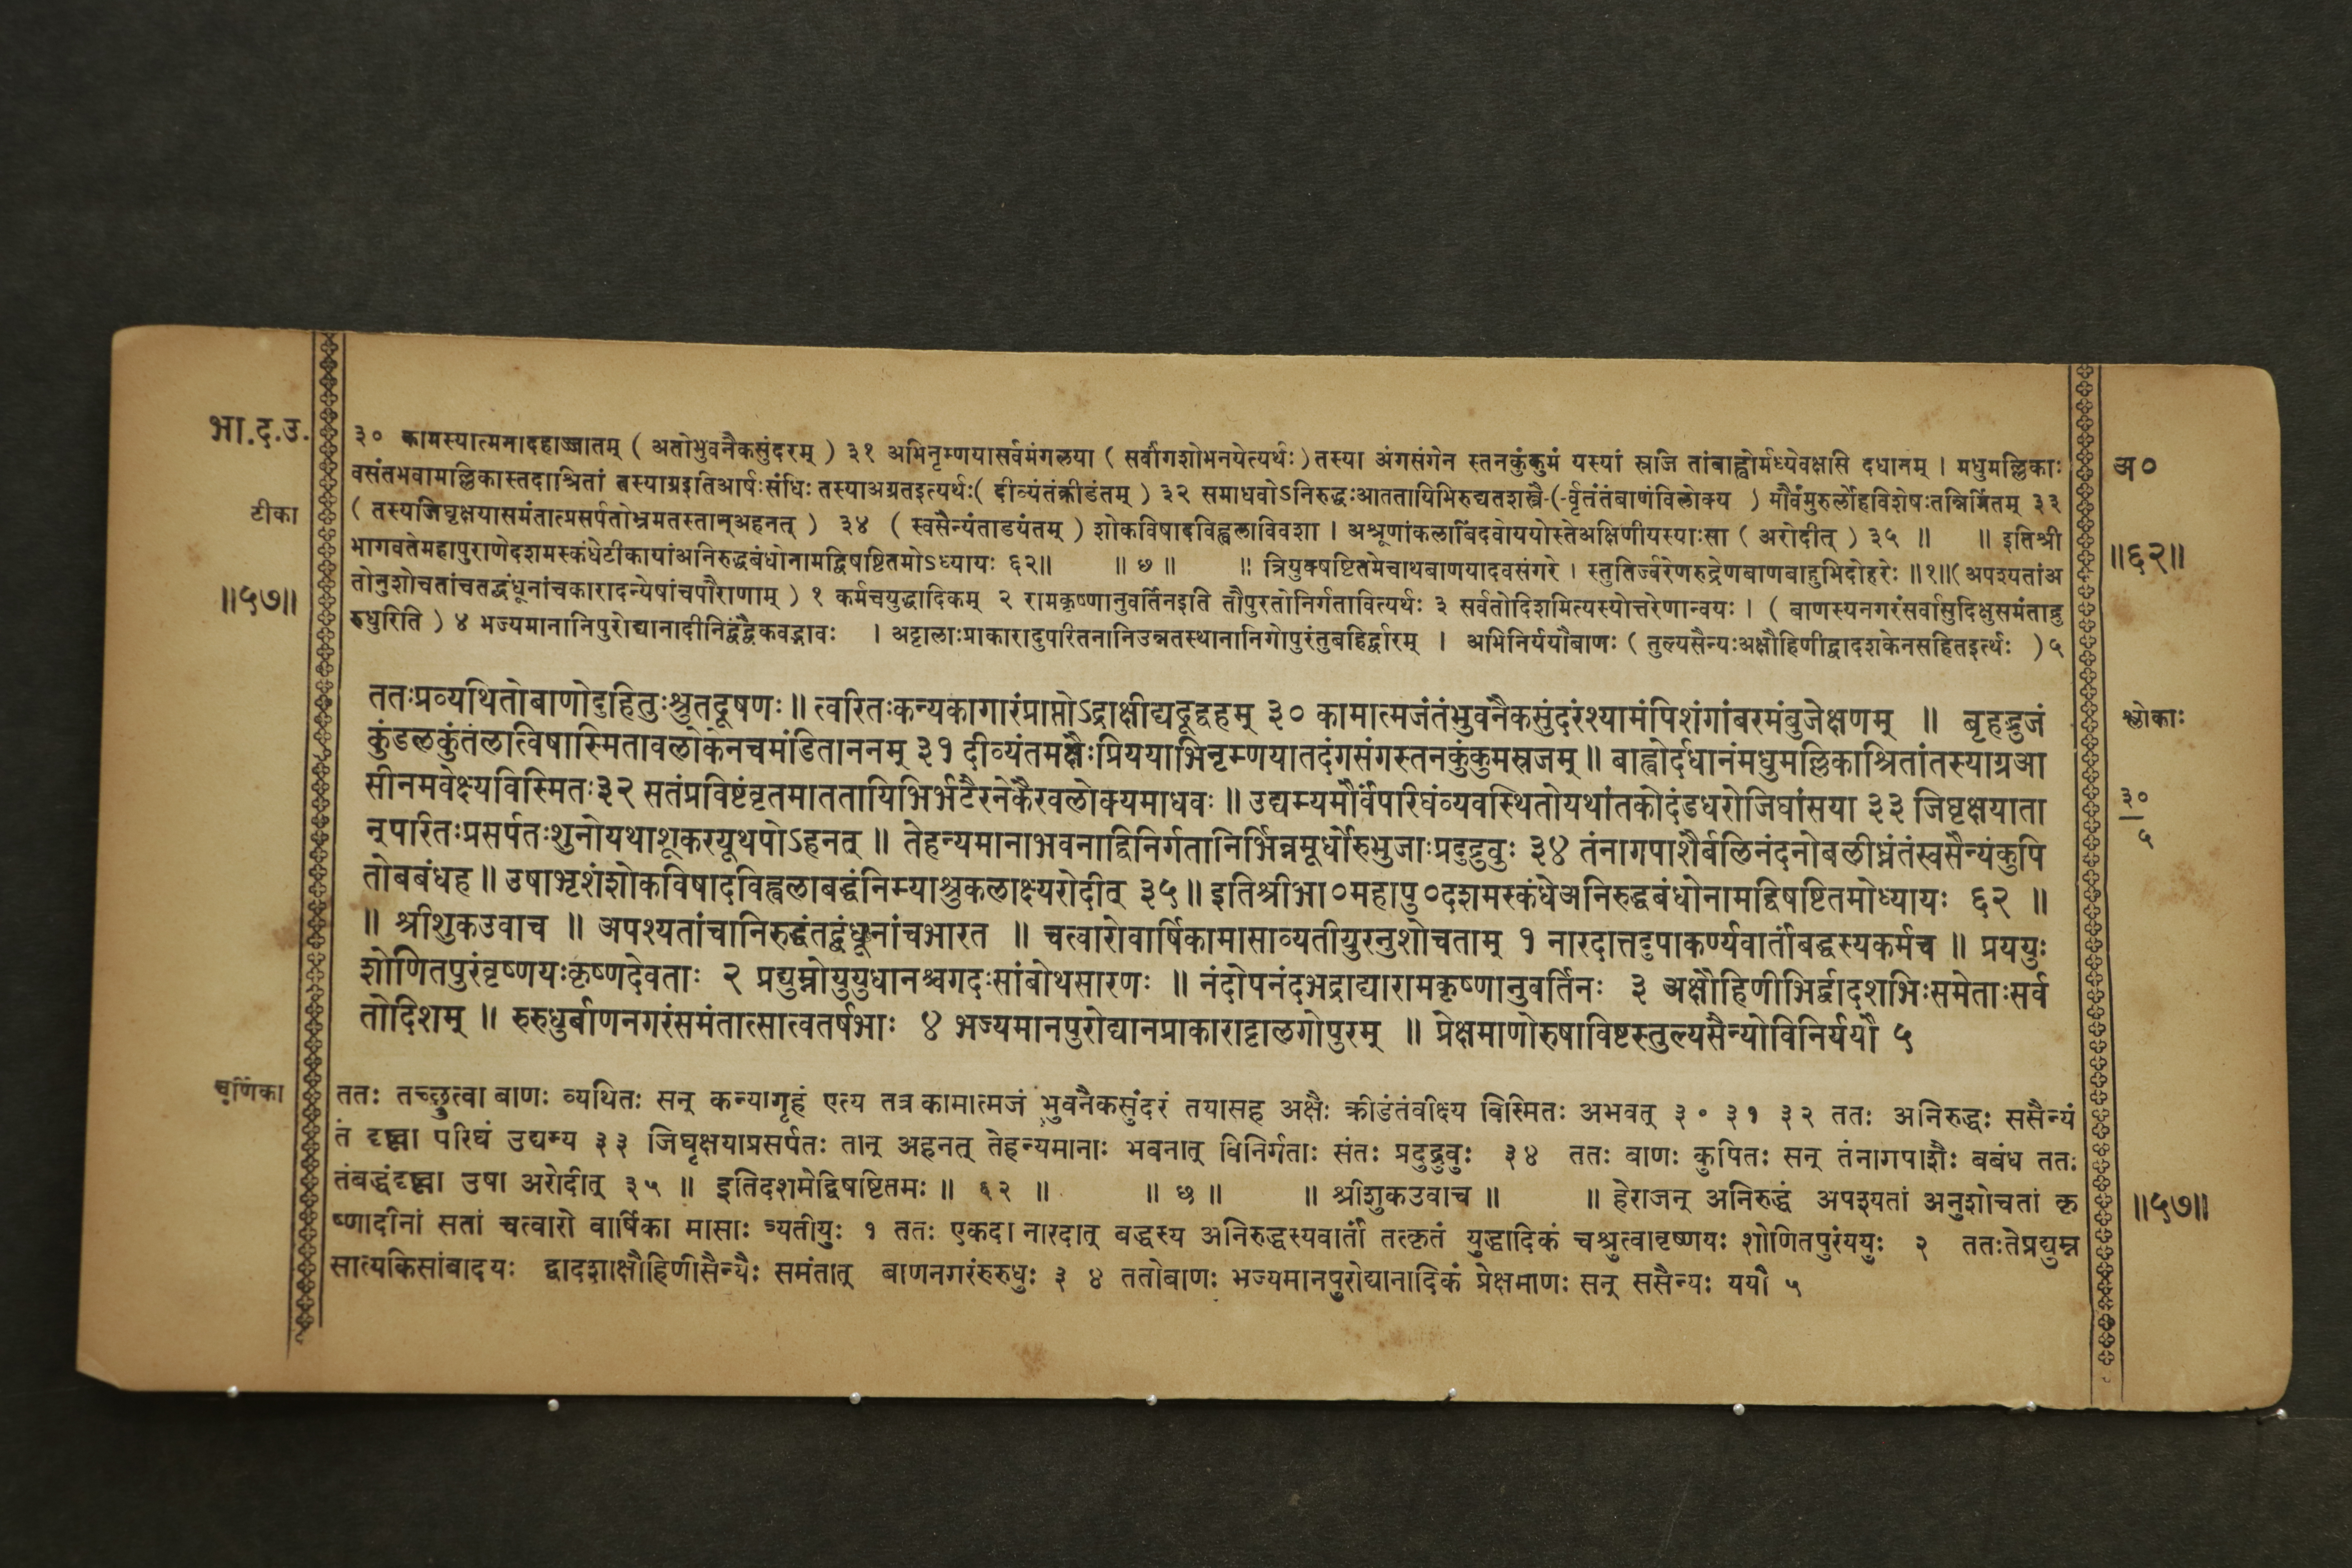 भा.द.उ.
टीका
॥५७॥
३० कामस्यात्मनादहाज्जातम् ( अतोभुवनैकसुंदरम् ) ३१ अभिनृम्णयासर्वमंगलया ( सर्वांगशोभनयेत्यर्थः ) तस्या अंगसंगेन स्तनकुंकुमं यस्यां स्रजि तांबाह्वोर्मध्येवक्षसि दधानम् । मधुमल्लिकाः
वसंतभवामल्लिकास्तदाश्रितां तस्याग्रइतिआर्षःसंधिः तस्याअग्रतइत्यर्थः( दीव्यंतंक्रीडंतम् ) ३२ समाधवोऽनिरुद्धःआततायिभिरुद्यतशस्त्रै-(-र्वृतंतंबाणंविलोक्य ) मौर्वंमुरुर्लोहविशेषःतन्निर्मितम् ३३
( तस्यजिघृक्षयासमंतात्प्रसर्पतोभ्रमतस्तान्अहनत् ) ३४ ( स्वसैन्यंताडयंतम् ) शोकविषादविह्वलाविवशा । अश्रूणांकलाबिंदवोययोस्तेअक्षिणीयस्याःसा ( अरोदीत् ) ३५ ॥ ॥ इतिश्री
भागवतेमहापुराणेदशमस्कंधेटीकायांअनिरुद्धबंधोनामद्विषष्टितमोऽध्यायः ६२॥ ॥ ७ ॥ ॥ त्रियुक्षष्टितमेचाथबाणयादवसंगरे । स्तुतिर्ज्वरेणरुद्रेणबाणबाहुभिदोहरेः ॥१॥( अपश्यतांअ
तोनुशोचतांचतद्बंधूनांचकारादन्येषांचपौराणाम् ) १ कर्मचयुद्धादिकम् २ रामकृष्णानुवर्तिनइति तौपुरतोनिर्गतावित्यर्थः ३ सर्वतोदिशमित्यस्योत्तरेणान्वयः । ( बाणस्यनगरंसर्वासुदिक्षुसमंताद्रु
रुधुरिति ) ४ भज्यमानानिपुरोद्यानादीनिद्वंद्वैकवद्भावः । अट्टालाःप्राकारादुपरितनानिउन्नतस्थानानिगोपुरंतुबहिर्द्वारम् । अभिनिर्ययौबाणः ( तुल्यसैन्यःअक्षौहिणीद्वादशकेनसहितइर्त्थः ) ५
अ०
॥६२॥
ततःप्रव्यथितोबाणोदुहितुःश्रुतदूषणः ॥ त्वरितःकन्यकागारंप्राप्तोऽद्राक्षीद्यदूद्वहम् ३० कामात्मजंतंभुवनैकसुंदरंश्यामंपिशंगांबरमंबुजेक्षणम् ॥ बृहद्भुजं
कुंडलकुंतलत्विषास्मितावलोकेनचमंडिताननम् ३१ दीव्यंतमक्षैःप्रिययाभिनृम्णयातदंगसंगस्तनकुंकुमस्रजम् ॥ बाह्वोर्दधानंमधुमल्लिकाश्रितांतस्याग्रआ
सीनमवेक्ष्यविस्मितः३२ सतंप्रविष्टंवृतमाततायिभिर्भटैरनेकैरवलोक्यमाधवः ॥ उद्यम्यमौर्वंपरिघंव्यवस्थितोयथांतकोदंडधरोजिघांसया ३३ जिघृक्षयाता
न्परितःप्रसर्पतःशुनोयथाशूकरयूथपोऽहनत् ॥ तेहन्यमानाभवनाद्विनिर्गतानिर्भिन्नमूर्धोरुभुजाःप्रदुद्रुवुः ३४ तंनागपाशैर्बलिनंदनोबलीघ्नंतंस्वसैन्यंकुपि
तोबबंधह ॥ उषाभृशंशोकविषादविह्वलाबद्धंनिम्याश्रुकलाक्ष्यरोदीत् ३५ ॥ इतिश्रीभा०महापु०दशमस्कंधेअनिरुद्धबंधोनामद्विषष्टितमोध्यायः ६२ ॥
॥ श्रीशुकउवाच ॥ अपश्यतांचानिरुद्धंतद्बंधूनांचभारत ॥ चत्वारोवार्षिकामासाव्यतीयुरनुशोचताम् १ नारदात्तदुपाकर्ण्यवार्तांबद्धस्यकर्मच ॥ प्रययुः
शोणितपुरंवृष्णयःकृष्णदेवताः २ प्रद्युम्नोयुयुधानश्चगदःसांबोथसारणः ॥ नंदोपनंदभद्राद्यारामकृष्णानुवर्तिनः ३ अक्षौहिणीभिर्द्वादशभिःसमेताःसर्व
तोदिशम् ॥ रुरुधुर्बाणनगरंसमंतात्सात्वतर्षभाः ४ भज्यमानपुरोद्यानप्राकाराट्टालगोपुरम् ॥ प्रेक्षमाणोरुषाविष्टस्तुल्यसैन्योविनिर्ययौ ५
श्लोकाः
३०
५
चूर्णिका
ततः तच्छ्रुत्वा बाणः व्यथितः सन् कन्यागृहं एत्य तत्र कामात्मजं भुवनैकसुंदरं तयासह अक्षैः क्रीडंतंवीक्ष्य विस्मितः अभवत् ३० ३१ ३२ ततः अनिरुद्धः ससैन्यं
तं दृष्ट्वा परिघं उद्यम्य ३३ जिघृक्षयाप्रसर्पतः तान् अहनत् तेहन्यमानाः भवनात् विनिर्गताः संतः प्रदुद्रुवुः ३४ ततः बाणः कुपितः सन् तंनागपाशैः बबंध ततः
तंबद्धंदृष्ट्वा उषा अरोदीत् ३५ ॥ इतिदशमेद्विषष्टितमः ॥ ६२ ॥ ॥ छ ॥ ॥ श्रीशुकउवाच ॥ ॥ हेराजन् अनिरुद्धं अपश्यतां अनुशोचतां कृ
ष्णादीनां सतां चत्वारो वार्षिका मासाः व्यतीयुः १ ततः एकदा नारदात् बद्धस्य अनिरुद्धस्यवार्तां तत्कृतं युद्धादिकं चश्रुत्वावृष्णयः शोणितपुरंययुः २ ततःतेप्रद्युम्न
सात्यकिसांबादयः द्वादशाक्षौहिणीसैन्यैः समंतात् बाणनगरंरुरुधुः ३ ४ ततोबाणः भज्यमानपुरोद्यानादिकं प्रेक्षमाणः सन् ससैन्यः ययौ ५
॥५७॥